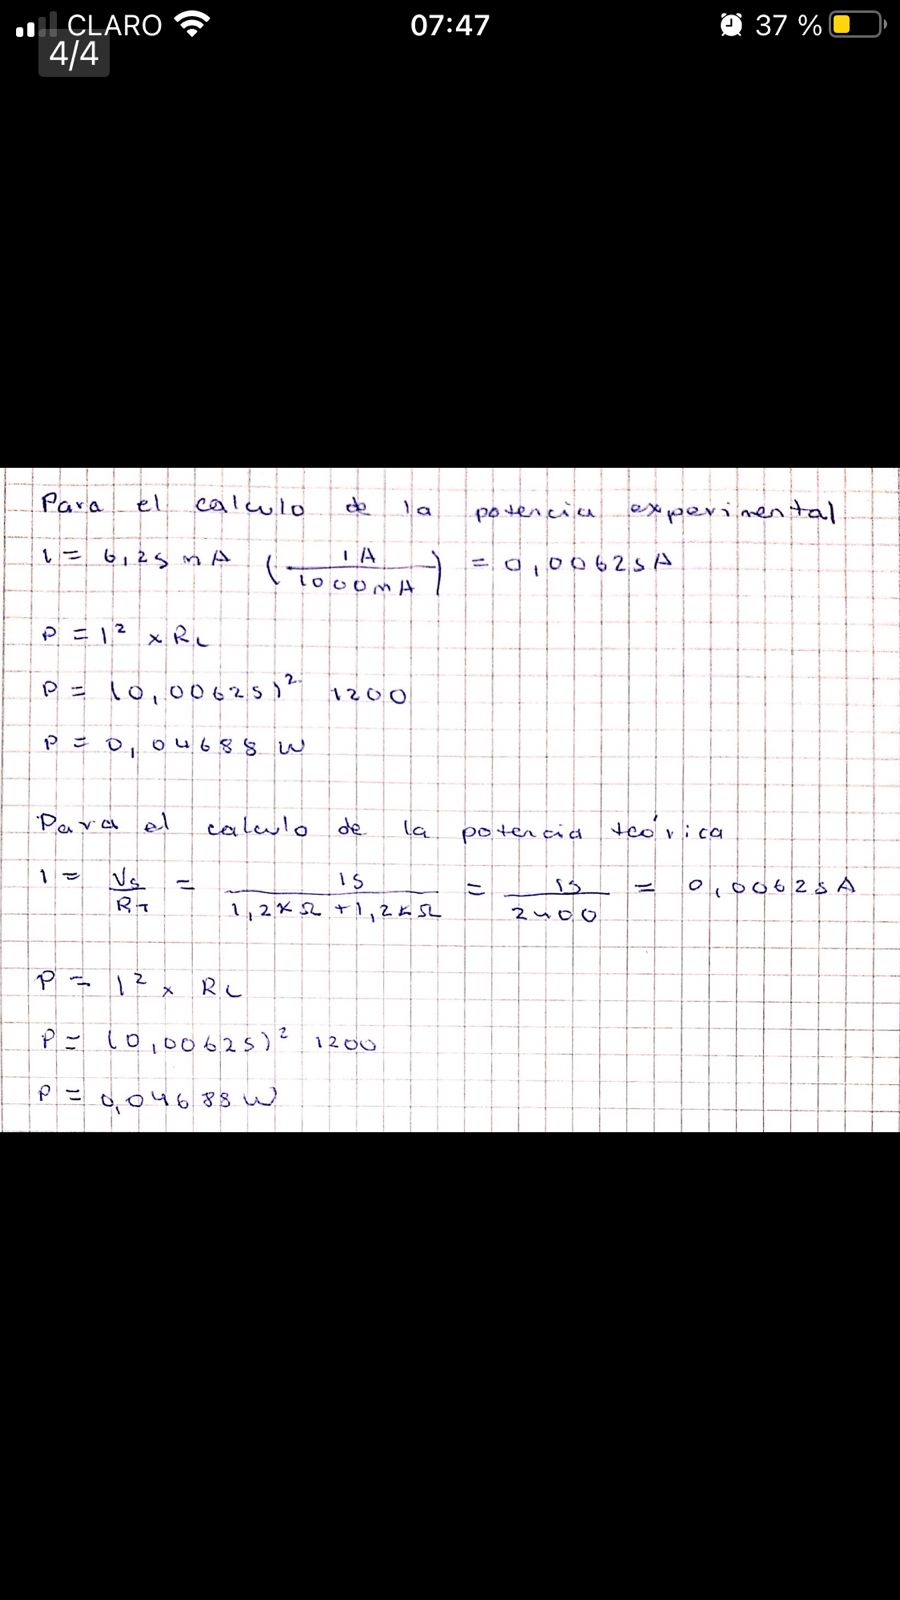 CLARO 07:47 37 %
4/4
Para el calculo de la potencia experimental
I = 6,25 mA ( 1 A / 1000 mA ) = 0,00625 A
P = I² x RL
P = (0,00625)² 1200
P = 0,04688 W
Para el calculo de la potencia teórica
I = Vs / RT = 15 / 1,2KΩ + 1,2KΩ = 15 / 2400 = 0,00625 A
P = I² x RL
P = (0,00625)² 1200
P = 0,04688 W